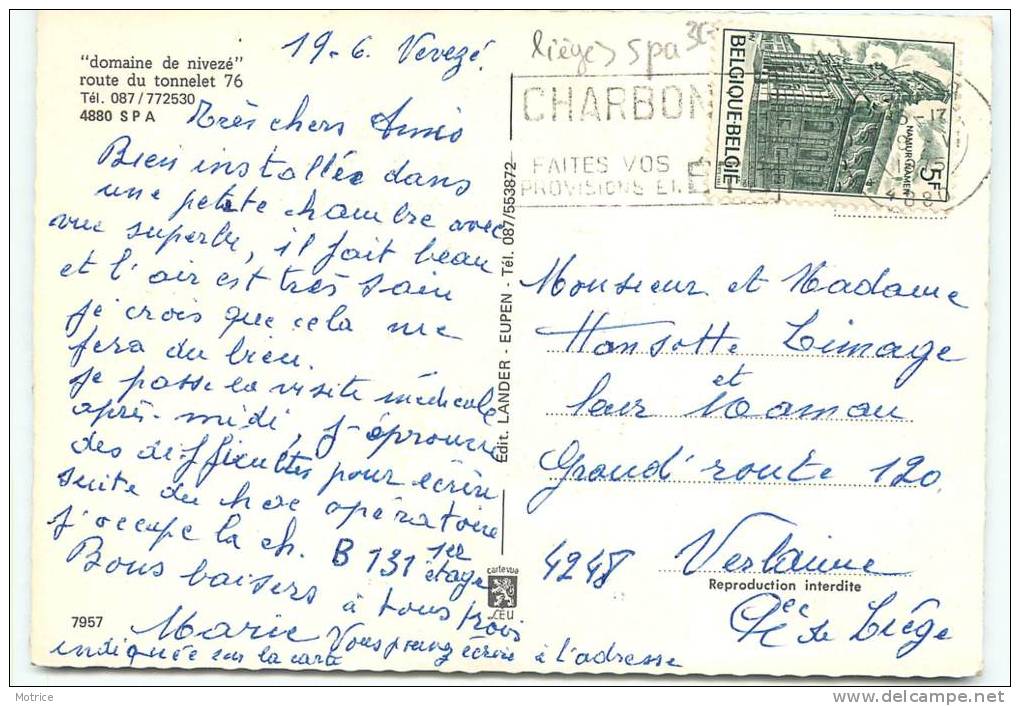 "domaine de nivezé"
route du tonnelet 76
Tél. 087/772530
4880 SPA
19-6. Vevezé.
Très chers Amis
Bien installée dans
une petite chambre avec
vue superbe, il fait beau
et l'air est très sain
je crois que cela me
fera du bien.
je passe la visite médicale
après-midi, j'éprouve
des difficultés pour écrire
suite du hoc opératoire
j'occupe la ch. B 131 1er
étage
Bons baisers
à tous trois
Marie Vous pouvez écrire à l'adresse
indiquée sur la cara
7957
Edit. LANDER - EUPEN - Tél. 087/553872
cartevue
LEU
lièges spa
CHARBON
FAITES VOS
PROVISIONS
BELGIQUE-BELGIË
NAMUR-NAMEN
5F
Monsieur et Madame
Hansotte Limage
et
leur Maman
Grand' route 120
4248 Verlaine
Reproduction interdite
Pce de Liège
Motrice
delcampe.net